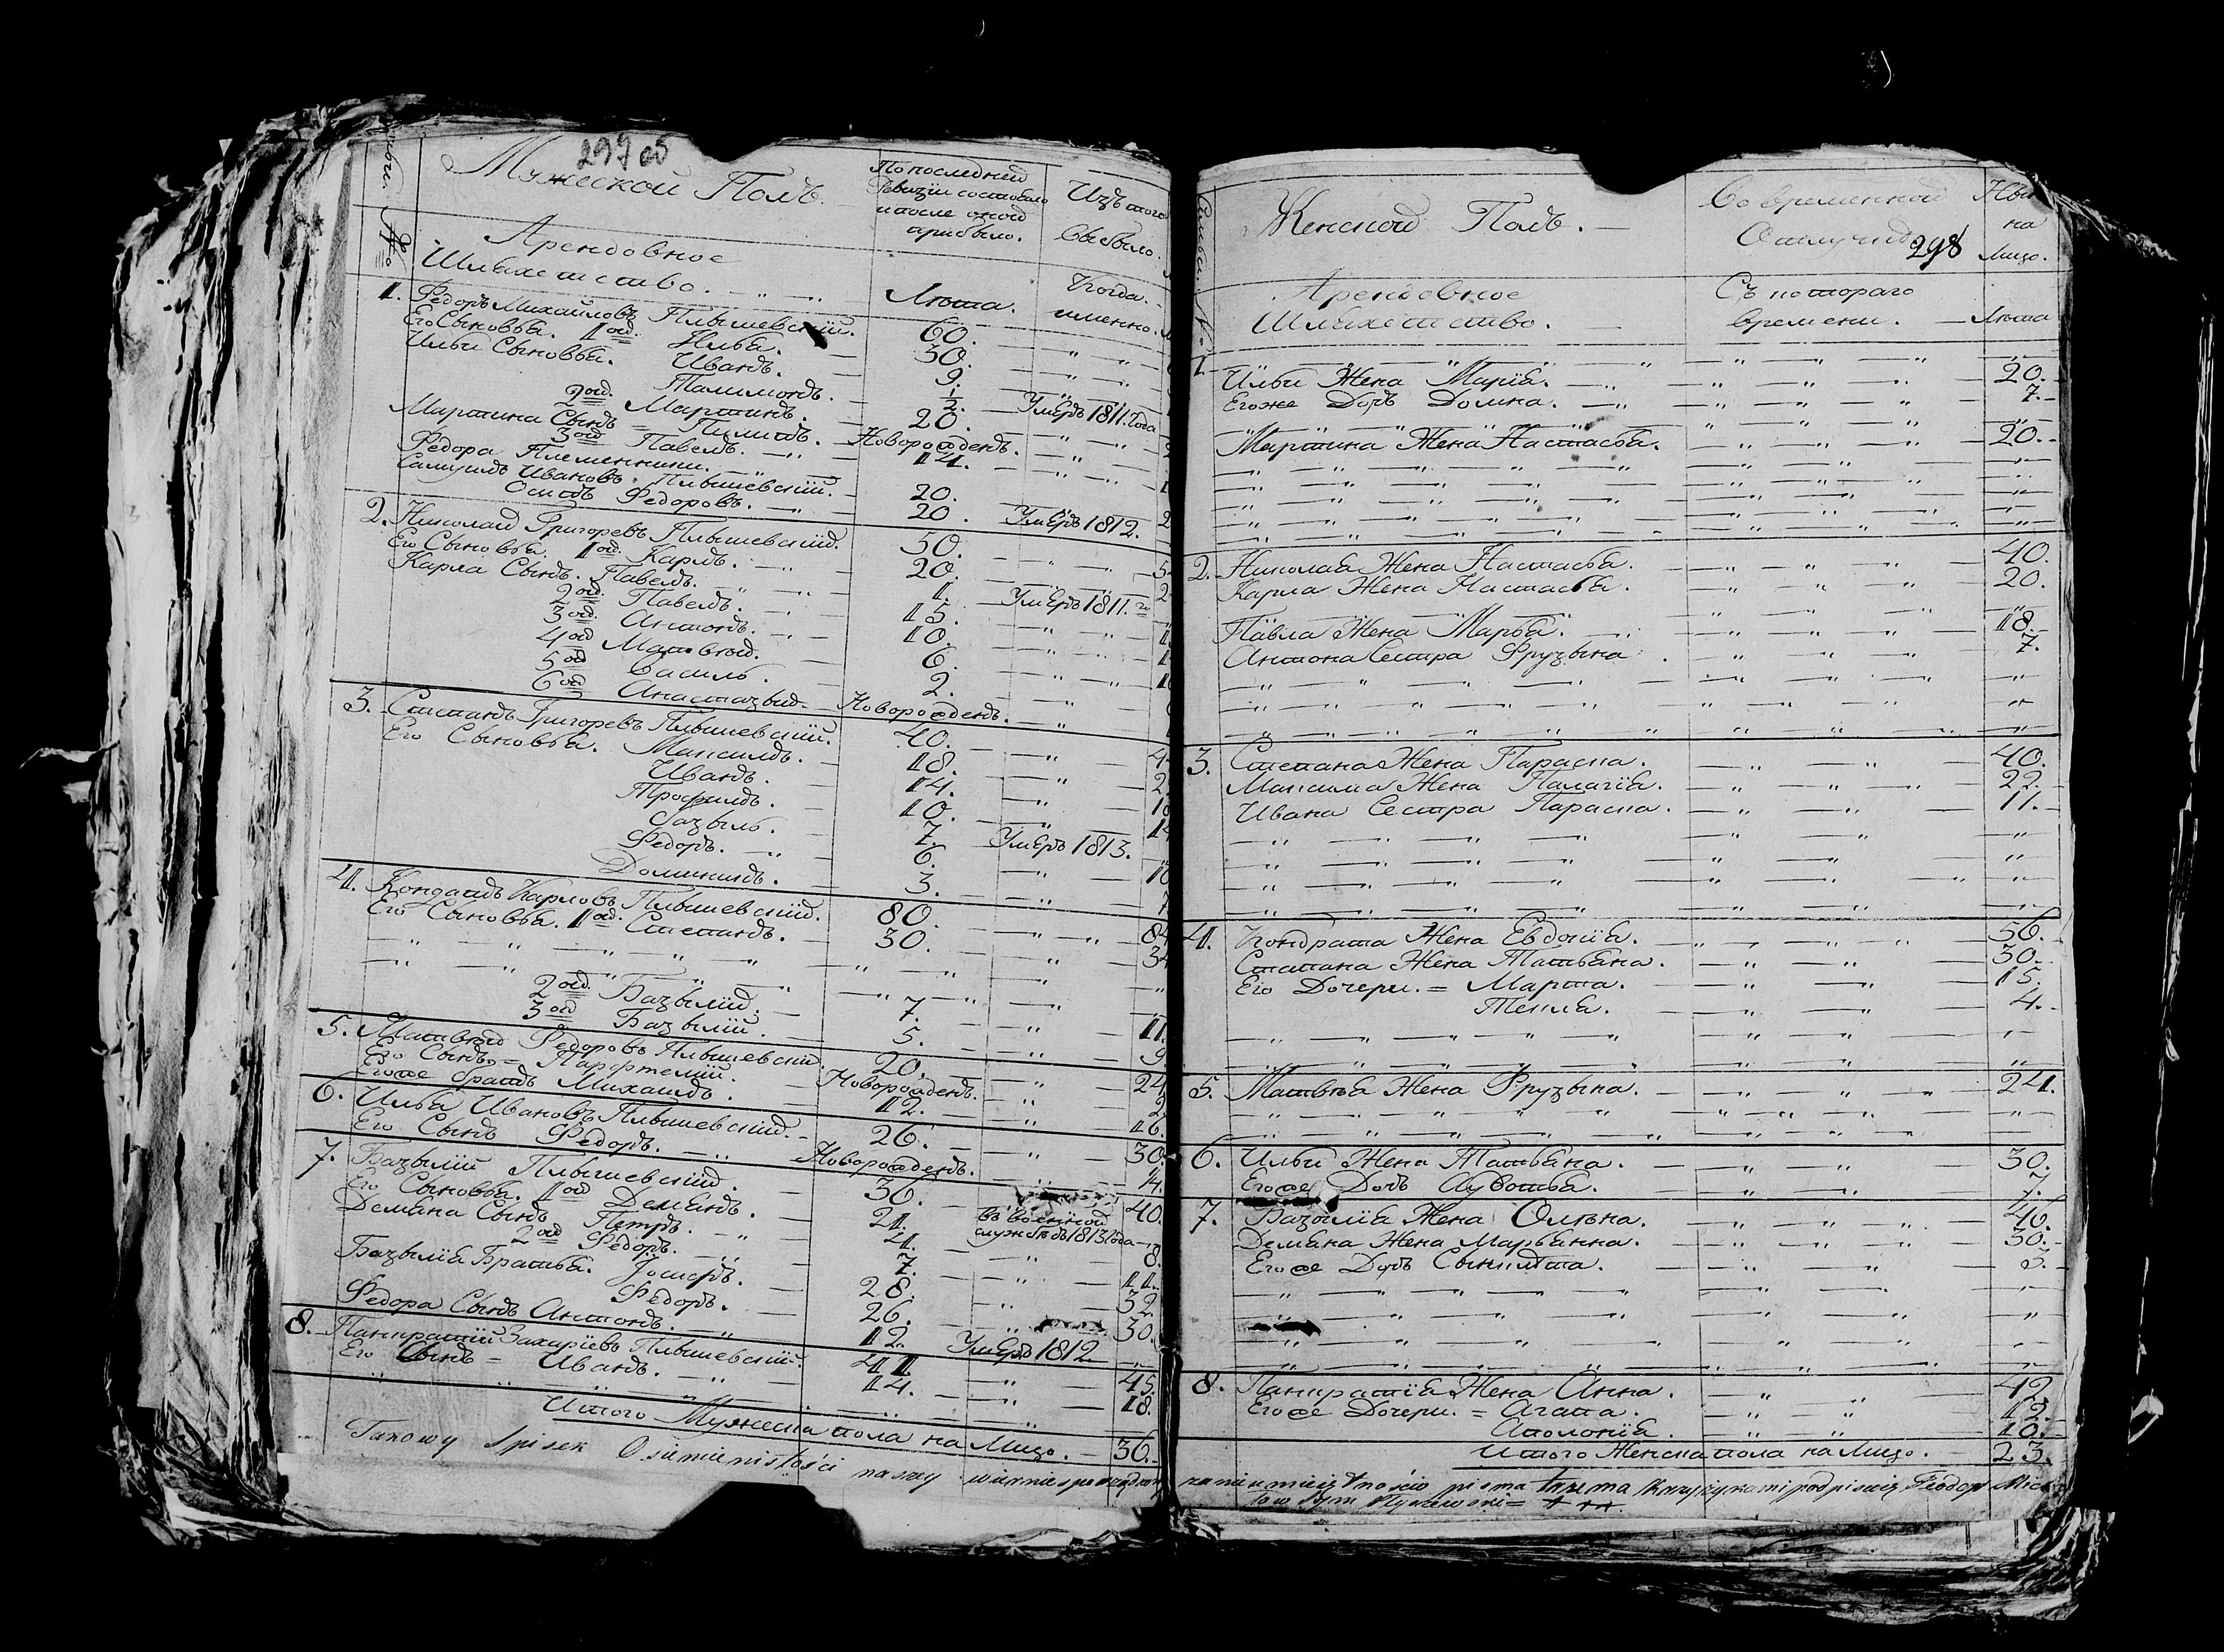 297 об
Мужеской Полъ.
По последней
Ревизіи состояло
и после оной
прибыло.
Изъ того
Выбыло.
Арендовное
Шляхетство.
Лѣта.
Когда
именно.
1. Федоръ Михайловъ Плышевскій. 60.
Его Сыновья. 1ой Илья. 30.
Ильи Сыновья. Иванъ. 9.
Талимонъ. 1/2. Умеръ 1811. Года
2ой Мартинъ. 20.
Мартина Сынъ = Пилипъ. Новорожденъ.
3ой Павелъ. 14.
Федора Племенники.
Самуилъ Ивановъ Плышевскій. 20.
Осипъ Федоровъ. 20. Умеръ 1812.
2. Николай Григорьевъ Плышевскій. 50.
Его Сыновья. 1ой Карлъ. 20.
Карла Сынъ. Павелъ. 1. Умеръ 1811. го
2ой Павелъ. 15.
3ой Антонъ. 10.
4ой Матвѣй. 6.
5ой Василь. 2.
6ой Анастазый. Новорожденъ.
3. Степанъ Григорьевъ Плышевскій. 40.
Его Сыновья. Максимъ. 18.
Иванъ. 14.
Трофимъ. 10.
Базыль. 7. Умеръ 1813.
Федоръ. 6.
Доминикъ. 3.
4. Кондратъ Карловъ Плышевскій. 80. 84
Его Сыновья. 1ой Степанъ. 30. 34
2ой Базылій. 7. 11.
3ой Базылій. 5. 9
5. Матвѣй Федоровъ Плышевскій. 20. 24
Его Сынъ = Парфтемій. Новорожденъ. 2
Его же братъ Михаилъ. 12. 16.
6. Илья Ивановъ Плышевскій. 26. 30.
Его Сынъ Федоръ. Новорожденъ. 4.
7. Базылій Плышевскій. 36. 40.
Его Сыновья. 1ой Демьянъ. 21. въ военной
службѣ съ 1813 Года
Демяна Сынъ Петръ. 4. 8.
2ой Федоръ. 7. 11.
Базылія Братья. Іосифъ. 28. 32
Федоръ. 26. 30.
Федора Сынъ Антонъ. 12. Умеръ 1812
8. Панкратій Захаріевъ Плышевскій. 41 45.
Его Сынъ = Иванъ. 14. 18.
Итого Мужеска пола на Лицо. 36.
Takowy Spisek O siemienistości naszey wiernie sporządzony
298
Женской Полъ.
Во временной
Отлучкѣ
Ны
на
лицо.
Арендовное
Шляхетство.
Съ котораго
времени.
Лѣта
1. Ильи Жена Марія. 20.
Его же Дочь Домна. 7.
Мартина Жена Настасья. 20.
2. Николая Жена Настасья. 40.
Карла Жена Настасья. 20.
Павла Жена Марья. 18.
Антона Сестра Фрузына 7.
3. Степана Жена Параска. 40.
Максима Жена Палагія. 22.
Ивана Сестра Параска. 11.
4. Кондрата Жена Евдокія. 56.
Степана Жена Татьяна. 30.
Его Дочери. = Марта. 15.
Текля. 4.
5. Матвѣя Жена Фрузына. 24.
6. Ильи Жена Татьяна. 30.
Его же Дочь Аудотья. 7.
7. Базылія Жена Олѣна. 40.
Демяна Жена Марьянна. 30.
Его же Дочь Сынклѣта. 3.
8. Панкратія Жена Анна. 42.
Его же Дочери. = Агапа. 12.
Аполонія. 10.
Итого Женска пола на Лицо. 23.
nieumieiętnościo pisma trzema krzyżykami podpisuię Fiodor Mich
low Syn Płyszewski = + + +.